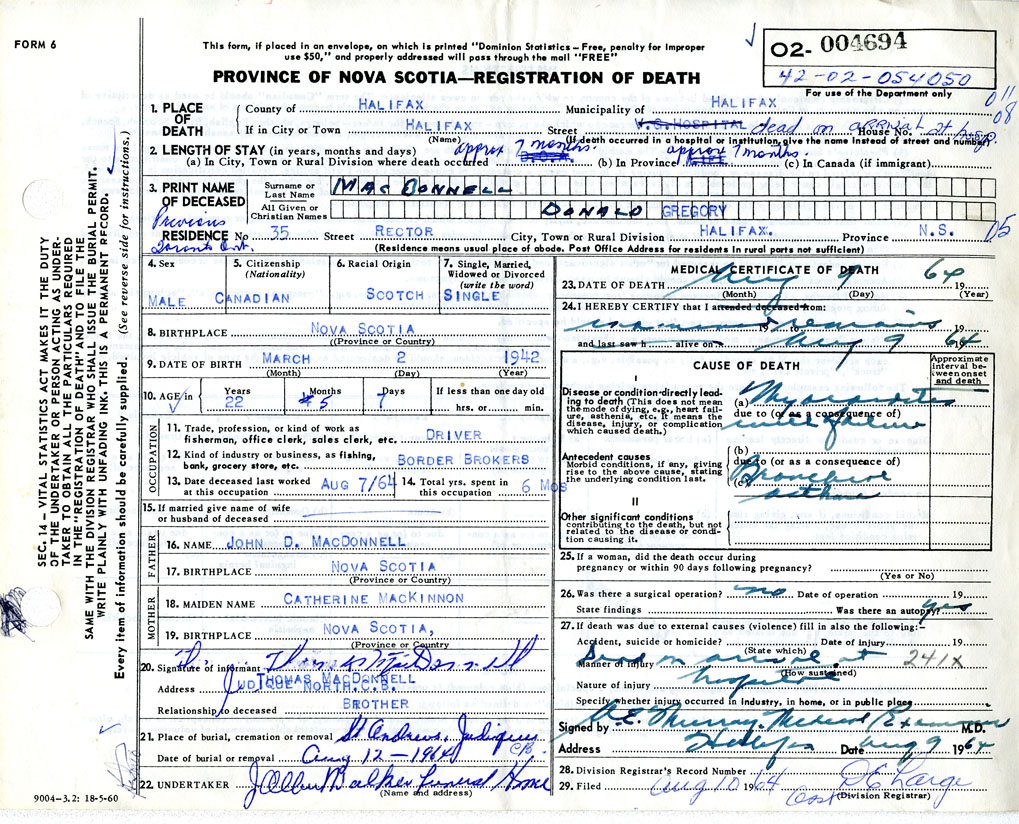 FORM 6
This form, if placed in an envelope, on which is printed "Dominion Statistics – Free, penalty for improper
use $50," and properly addressed will pass through the mail "FREE"
PROVINCE OF NOVA SCOTIA—REGISTRATION OF DEATH
02- 004694
42-02-054050
For use of the Department only
011
08
1. PLACE OF DEATH
County of HALIFAX Municipality of HALIFAX
If in City or Town HALIFAX Street V.G.HOSPITAL dead on arrival at hosp. House No.
(Name) (If death occurred in a hospital or institution, give name instead of street and number)
2. LENGTH OF STAY (in years, months and days)
(a) In City, Town or Rural Division where death occurred approx 7 months (b) In Province LIFE approx 7 months. (c) In Canada (if immigrant)
3. PRINT NAME OF DECEASED
Surname or Last Name MAC DONNELL
All Given or Christian Names DONALD GREGORY
Previous
Toronto Ont.
RESIDENCE No 35 Street RECTOR City, Town or Rural Division HALIFAX. Province N.S. 05
(Residence means usual place of abode. Post Office Address for residents in rural parts not sufficient)
4. Sex
MALE
5. Citizenship
(Nationality)
CANADIAN
6. Racial Origin
SCOTCH
7. Single, Married,
Widowed or Divorced
(write the word)
SINGLE
8. BIRTHPLACE NOVA SCOTIA
((Province or Country)
9. DATE OF BIRTH MARCH 2 1942
(Month) (Day) (Year)
10. AGE in
Years Months Days If less than one day old
22 5 7 hrs. or min.
OCCUPATION
11. Trade, profession, or kind of work as
fisherman, office clerk, sales clerk, etc. DRIVER
12. Kind of industry or business, as fishing,
bank, grocery store, etc. BORDER BROKERS
13. Date deceased last worked
at this occupation AUG 7/64
14. Total yrs. spent in
this occupation 6 MOS
15. If married give name of wife
or husband of deceased
FATHER
16. NAME JOHN D. MACDONNELL
17. BIRTHPLACE NOVA SCOTIA
(Province or Country)
MOTHER
18. MAIDEN NAME CATHERINE MACKINNON
19. BIRTHPLACE NOVA SCOTIA,
(Province or Country)
20. Signature of informant Thomas MacDonnell
THOMAS MACDONNELL
Address JUDIQUE NORTH.C.B.
Relationship to deceased BROTHER
21. Place of burial, cremation or removal St Andrews, Judique C.B.
Date of burial or removal Aug 12 – 1964
22. UNDERTAKER J Allen Walker Funeral Home
(Name and address)
9004-3.2: 18-5-60
SEC. 14 – VITAL STATISTICS ACT MAKES IT THE DUTY
OF THE UNDERTAKER OR PERSON ACTING AS UNDER-
TAKER TO OBTAIN ALL THE PARTICULARS REQUIRED
IN THE "REGISTRATION OF DEATH" AND TO FILE THE
SAME WITH THE DIVISION REGISTRAR WHO SHALL ISSUE THE BURIAL PERMIT.
WRITE PLAINLY WITH UNFADING INK. THIS IS A PERMANENT RECORD.
Every item of information should be carefully supplied. (See reverse side for instructions.)
MEDICAL CERTIFICATE OF DEATH
23. DATE OF DEATH Aug 9 64
(Month) (Day) (Year)
24. I HEREBY CERTIFY that I attended deceased from:
examined 19 to remains 19
and last saw h alive on Aug 9 1964
CAUSE OF DEATH
Approximate
interval be-
tween onset
and death
I
Disease or condition directly lead-
ing to death (This does not mean
the mode of dying, e.g., heart fail-
ure, asthenia, etc. It means the
disease, injury, or complication
which caused death.)
(a) Myocarditis
due to (or as a consequence of)
with failure
Antecedent causes
Morbid conditions, if any, giving
rise to the above cause, stating
the underlying condition last.
(b)
due to (or as a consequence of)
(c) Bronchial
asthma
II
Other significant conditions
contributing to the death, but not
related to the disease or condi-
tion causing it.
25. If a woman, did the death occur during
pregnancy or within 90 days following pregnancy?
(Yes or No)
26. Was there a surgical operation? no Date of operation 19
State findings Was there an autopsy? yes
27. If death was due to external causes (violence) fill in also the following:–
Accident, suicide or homicide? Date of injury 19
(State which)
Manner of injury Dead on arrival at 241X
(How sustained)
hospital
Nature of injury
Specify whether injury occurred in industry, in home, or in public place
Signed by A.E. Murray Medical Examiner M.D.
Address Halifax Date Aug 9 1964
28. Division Registrar's Record Number
29. Filed Aug 10 1964 D E Large
(Division Registrar)